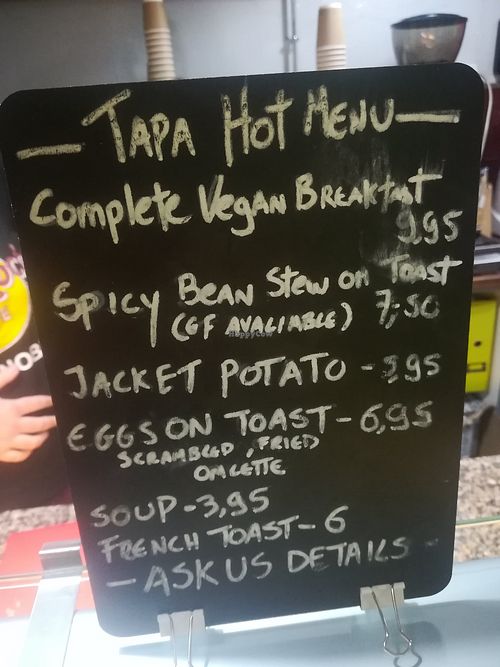 — TAPA HOT MENU —
Complete Vegan Breakfast
9.95
Spicy Bean Stew on Toast
(GF AVALIABLE) 7,50
HappyCow
JACKET POTATO - 3,95
EGGS ON TOAST - 6,95
SCRAMBLED, FRIED
OMLETTE
SOUP - 3,95
FRENCH TOAST - 6
— ASK US DETAILS -